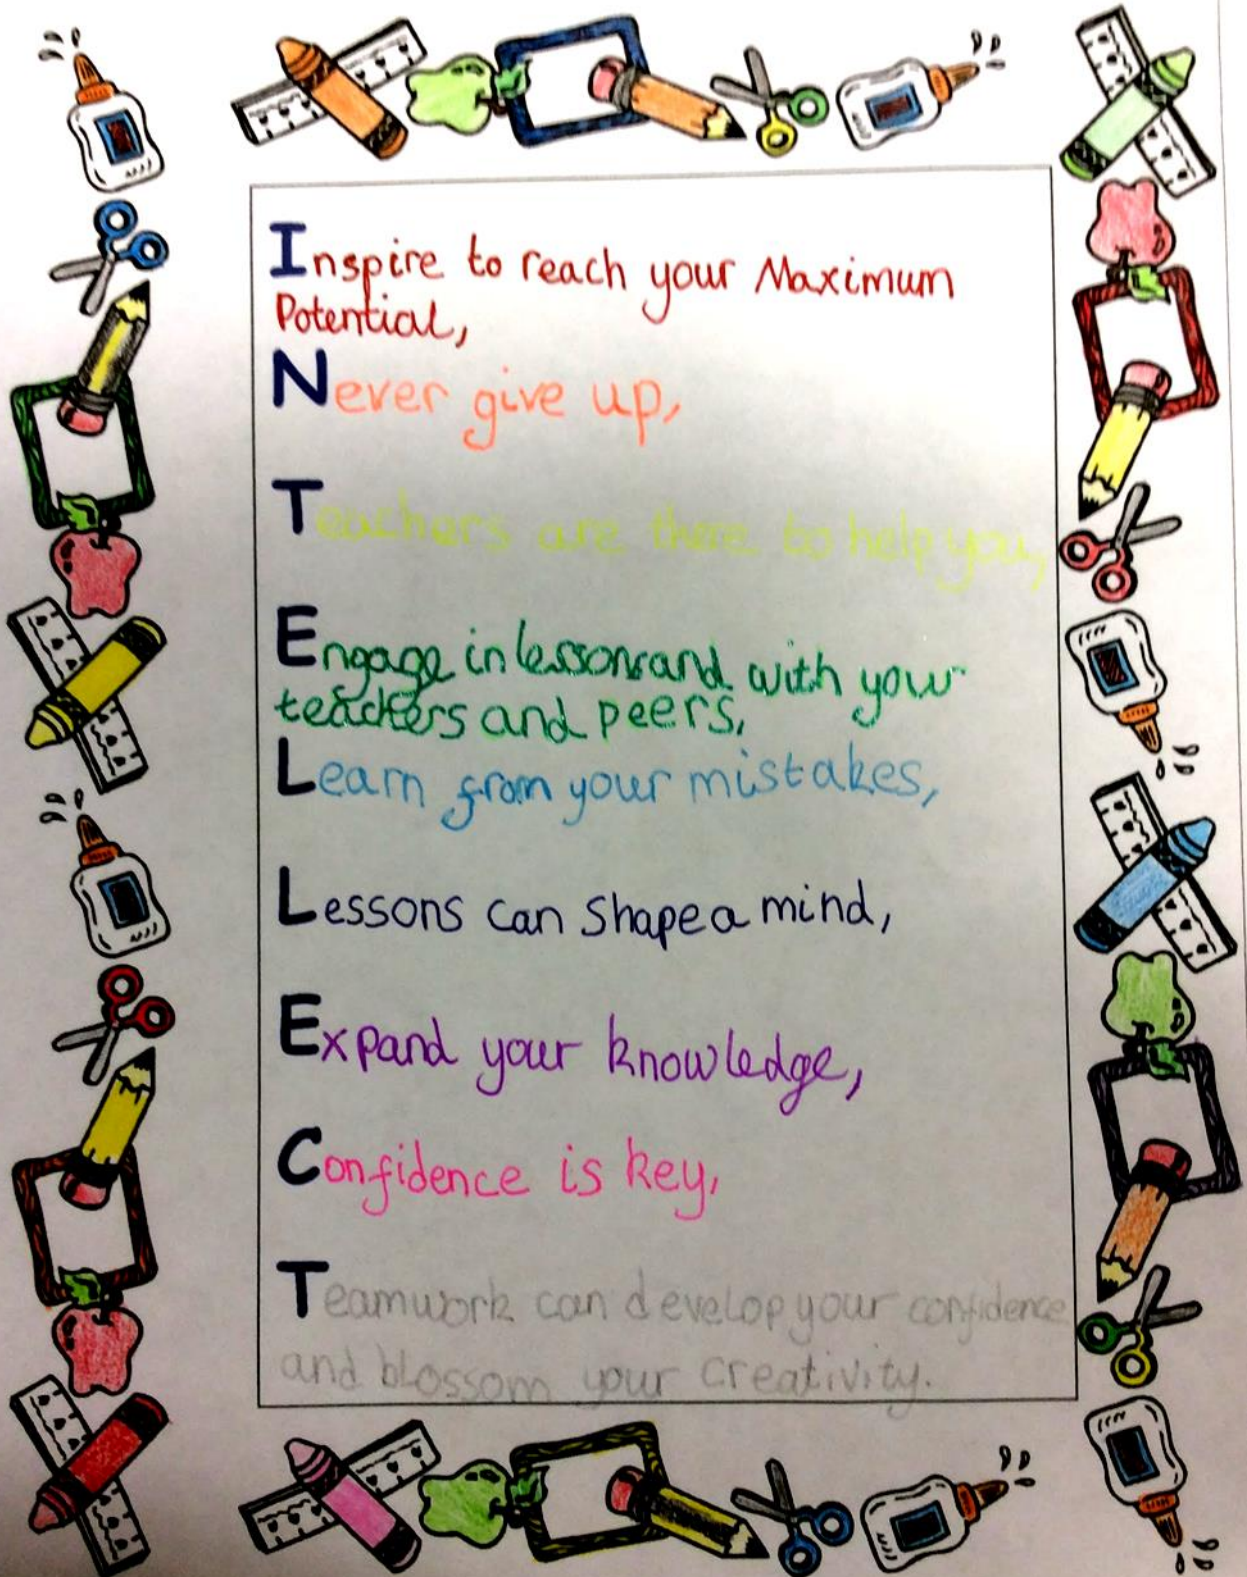 Inspire to reach your Maximum
Potential,
Never give up,
Teachers are there to help you,
Engage in lessons and with your
teachers and peers,
Learn from your mistakes,
Lessons can shape a mind,
Expand your knowledge,
Confidence is key,
Teamwork can develop your confidence
and blossom your creativity.